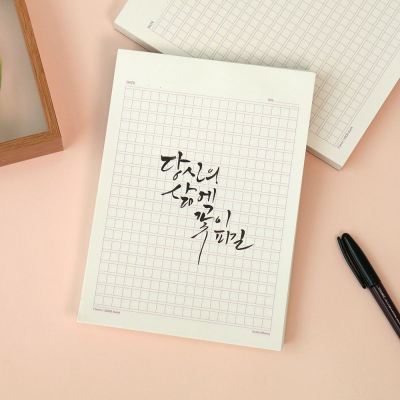 당신의
삶에
꽃이
피길